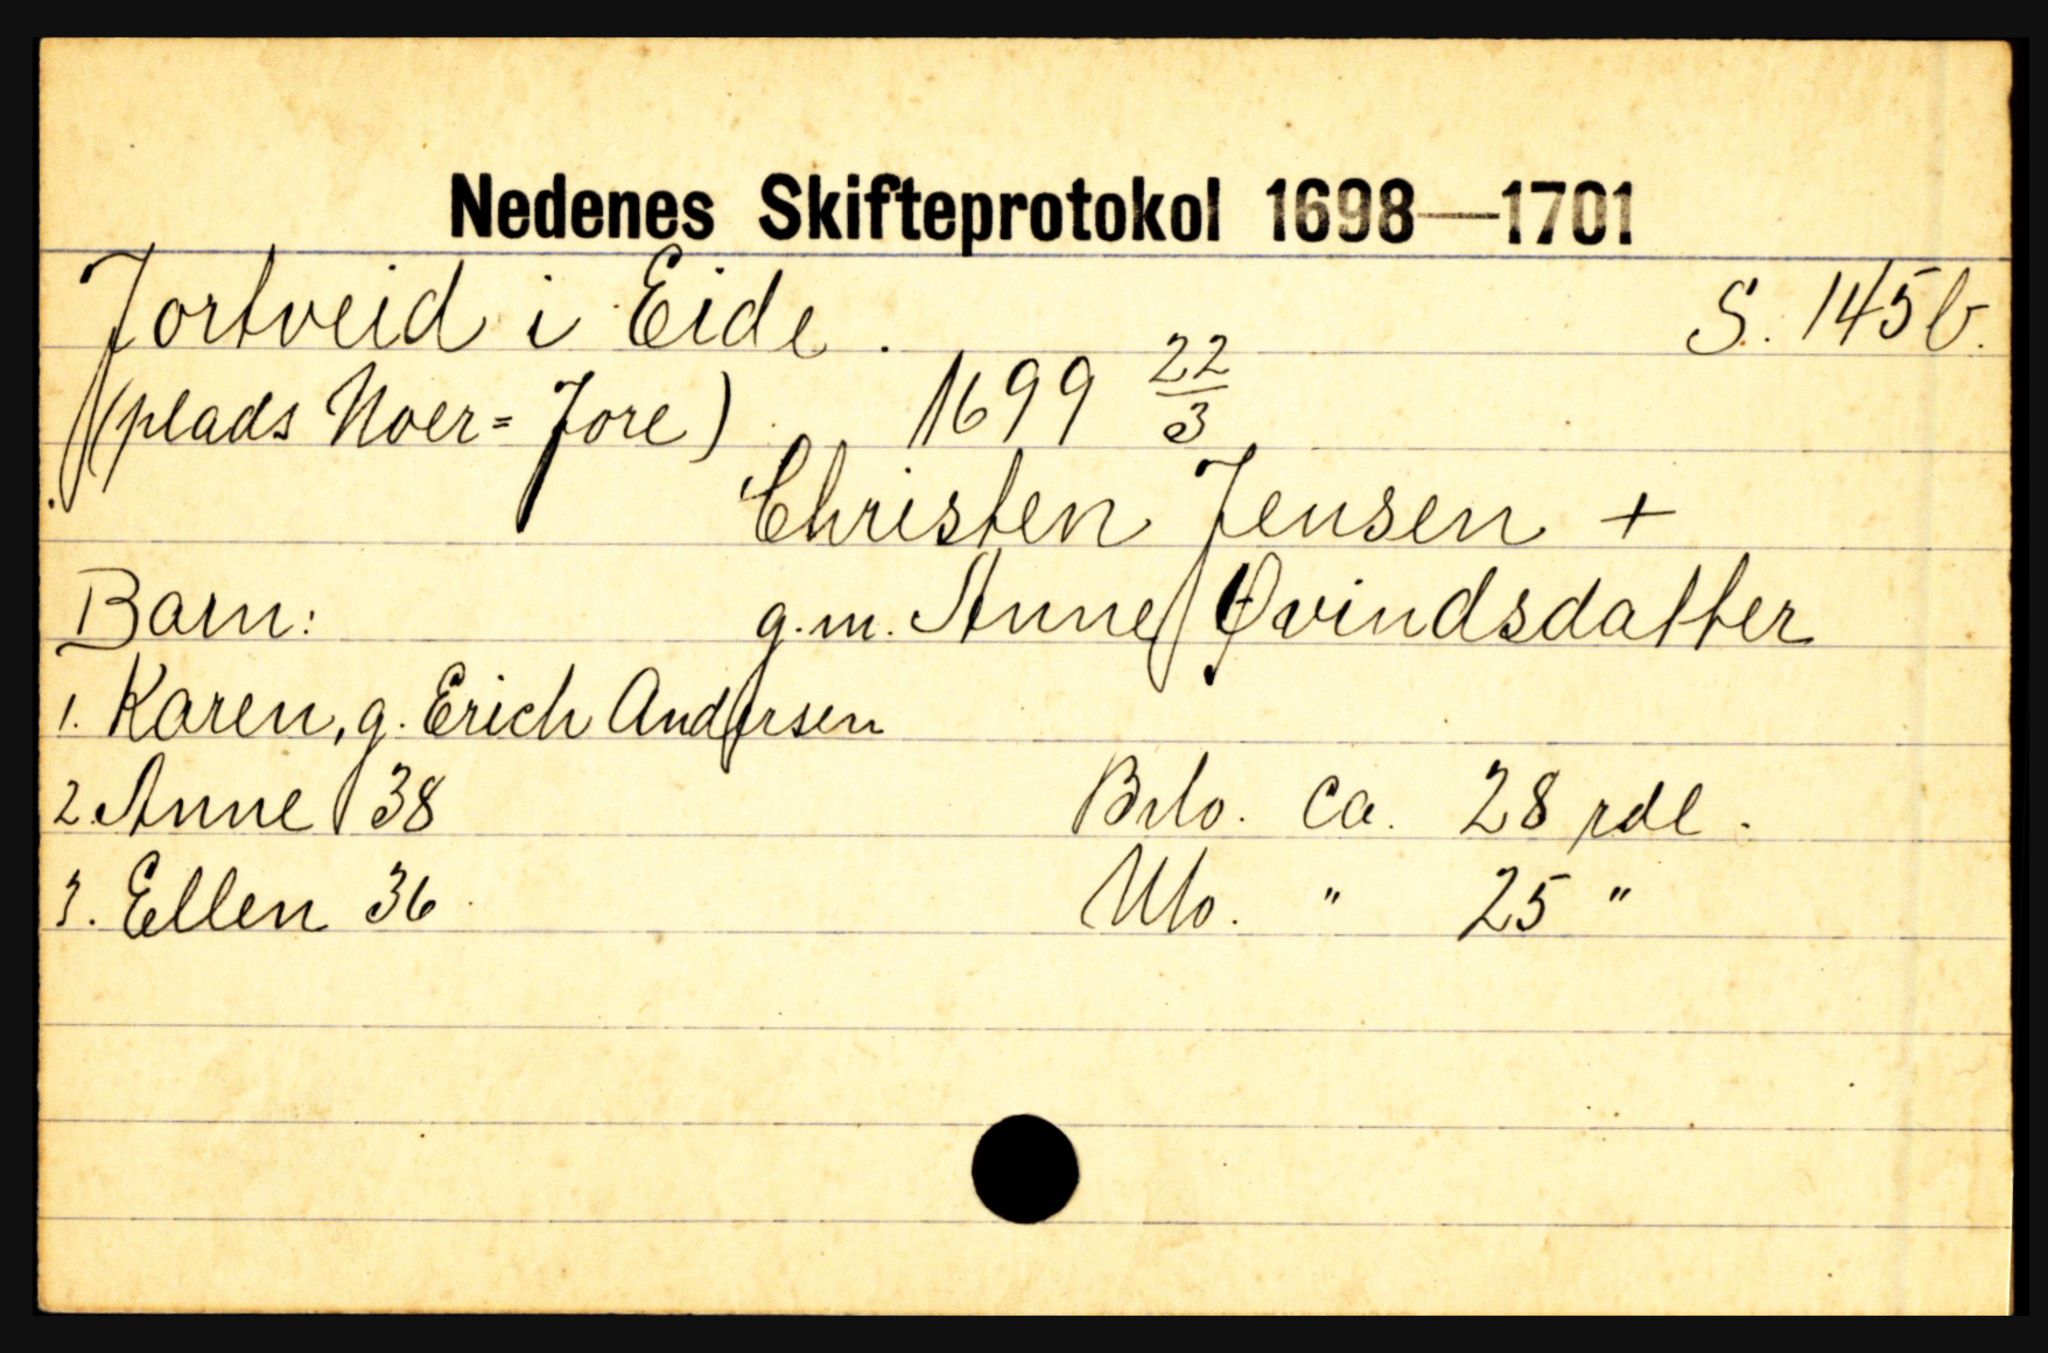 Nedenes Skifteprotokol 1698—1701
Jortveid i Eide. S. 145b.
(plads Noer= Jore) 1699 22/3
Christen Jensen +
Barn: g.m. Anne Øvindsdatter
1. Karen, g. Erich Andersen
2. Anne 38 Brlo. ca. 28 rdl.
3. Ellen 36. Nlo. " 25 "